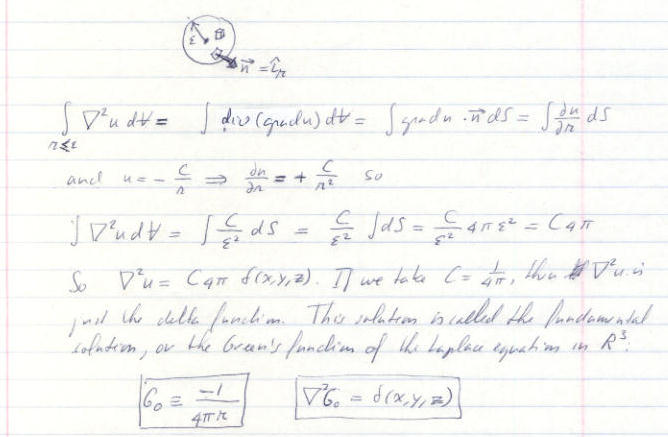 ε n⃗ = î_r
∫_{r≤ε} ∇²u dV = ∫ div(grad u) dV = ∫ grad u · n⃗ dS = ∫ ∂u/∂r dS
and u = - C/r ⇒ ∂u/∂r = + C/r² so
∫ ∇²u dV = ∫ C/ε² dS = C/ε² ∫ dS = C/ε² 4πε² = C4π
So ∇²u = C4π δ(x,y,z). If we take C = 1/4π, then ∇²u is
just the delta function. This solution is called the fundamental
solution, or the Green's function of the Laplace equation in R³:
G₀ ≡ -1/4πr ∇²G₀ = δ(x,y,z)